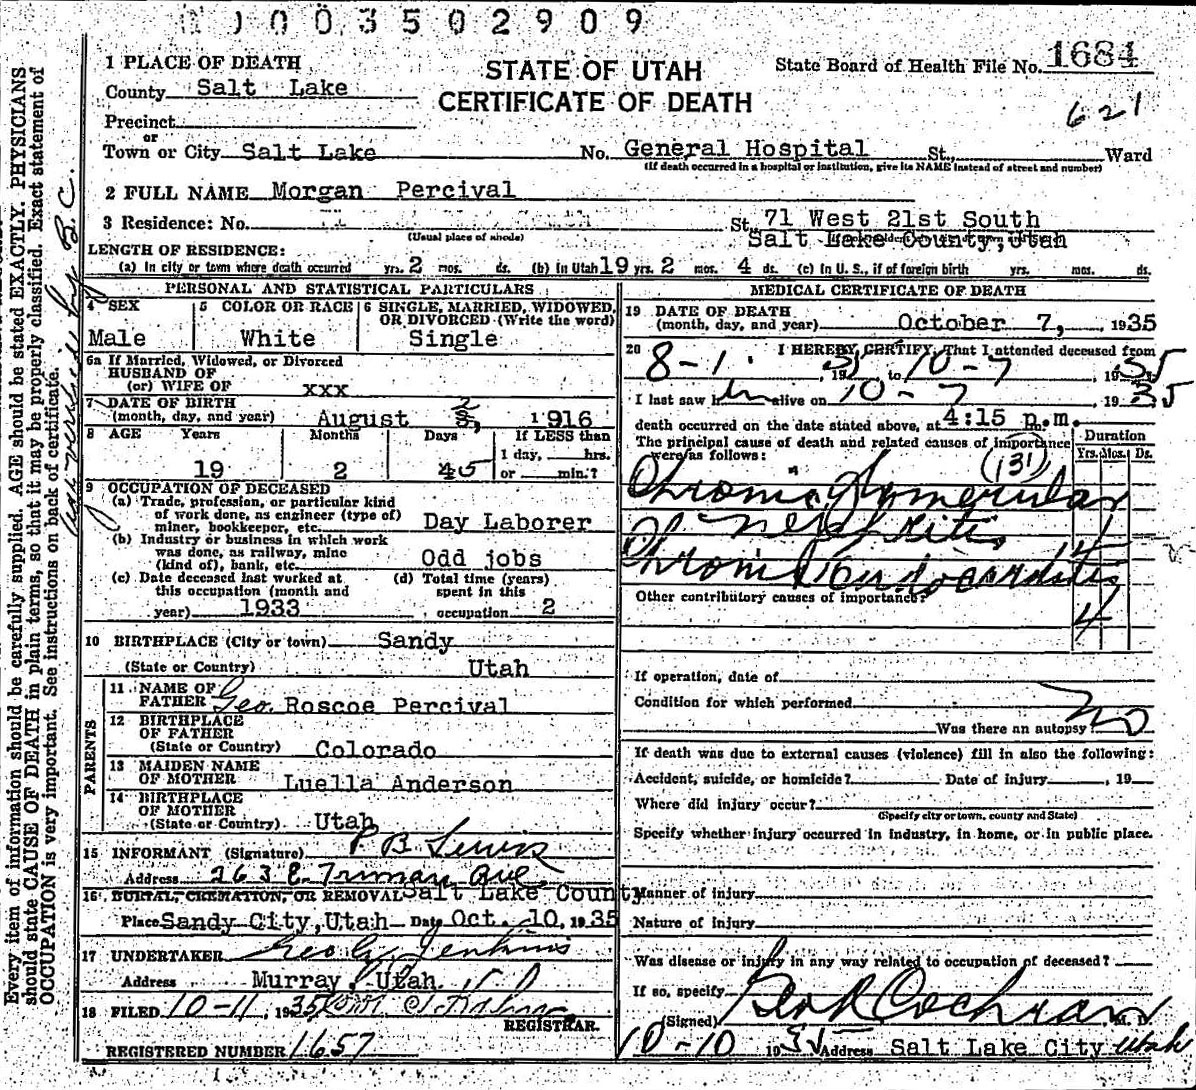 0003502909
1 PLACE OF DEATH
STATE OF UTAH
CERTIFICATE OF DEATH
State Board of Health File No. 1684
621
County Salt Lake
Precinct
or
Town or City Salt Lake No. General Hospital St., Ward
(If death occurred in a hospital or institution, give its NAME instead of street and number)
2 FULL NAME Morgan Percival
3 Residence: No. St. 71 West 21st South
(Usual place of abode) Salt Lake County, Utah
LENGTH OF RESIDENCE:
(a) In city or town where death occurred yrs. 2 mos. ds. (b) in Utah 19 yrs. 2 mos. 4 ds. (c) In U. S., if of foreign birth yrs. mos. ds.
PERSONAL AND STATISTICAL PARTICULARS
4 SEX
Male
5 COLOR OR RACE
White
6 SINGLE, MARRIED, WIDOWED,
OR DIVORCED (Write the word)
Single
6a If Married, Widowed, or Divorced
HUSBAND OF
(or) WIFE OF xxx
7 DATE OF BIRTH
(month, day, and year) August 2, 1916
8 AGE Years Months Days If LESS than
1 day, hrs.
19 2 5 or min.?
9 OCCUPATION OF DECEASED
(a) Trade, profession, or particular kind
of work done, as engineer (type of)
miner, bookkeeper, etc. Day Laborer
(b) Industry or business in which work
was done, as railway, mine
(kind of), bank, etc. Odd jobs
(c) Date deceased last worked at
this occupation (month and
year) 1933
(d) Total time (years)
spent in this
occupation 2
10 BIRTHPLACE (City or town) Sandy
(State or Country) Utah
PARENTS
11 NAME OF
FATHER Geo. Roscoe Percival
12 BIRTHPLACE
OF FATHER
(State or Country) Colorado
13 MAIDEN NAME
OF MOTHER Luella Anderson
14 BIRTHPLACE
OF MOTHER
(State or Country) Utah
15 INFORMANT (Signature) P B Lewis
Address 263 E. Truman Ave.
16 BURIAL, CREMATION, OR REMOVAL Salt Lake County
Place Sandy City, Utah Date Oct. 10, 1935
17 UNDERTAKER Geo Jenkins
Address Murray, Utah.
18 FILED 10-11, 1935
REGISTRAR.
REGISTERED NUMBER 1657
MEDICAL CERTIFICATE OF DEATH
19 DATE OF DEATH
(month, day, and year) October 7, 1935
20 I HEREBY CERTIFY, That I attended deceased from
8-1, 1935 to 10-7, 1935
I last saw him alive on 10-7, 1935
death occurred on the date stated above, at 4:15 p.m.
The principal cause of death and related causes of importance
were as follows: (131)
Duration
Yrs. Mos. Ds.
Chronic Glomerular
Nephritis 14
Chronic Endocarditis
Other contributory causes of importance?
4
If operation, date of
Condition for which performed
Was there an autopsy? No
If death was due to external causes (violence) fill in also the following:
Accident, suicide, or homicide? Date of injury, 19
Where did injury occur?
(Specify city or town, county and State)
Specify whether injury occurred in industry, in home, or in public place.
Manner of injury
Nature of injury
Was disease or injury in any way related to occupation of deceased?
If so, specify
(Signed) Geo R Cochran M. D.
10-10 1935 Address Salt Lake City Utah
Every item of information should be carefully supplied. AGE should be stated EXACTLY. PHYSICIANS
should state CAUSE OF DEATH in plain terms, so that it may be properly classified. Exact statement of
OCCUPATION is very important. See instructions on back of certificate.
verified by B.C.